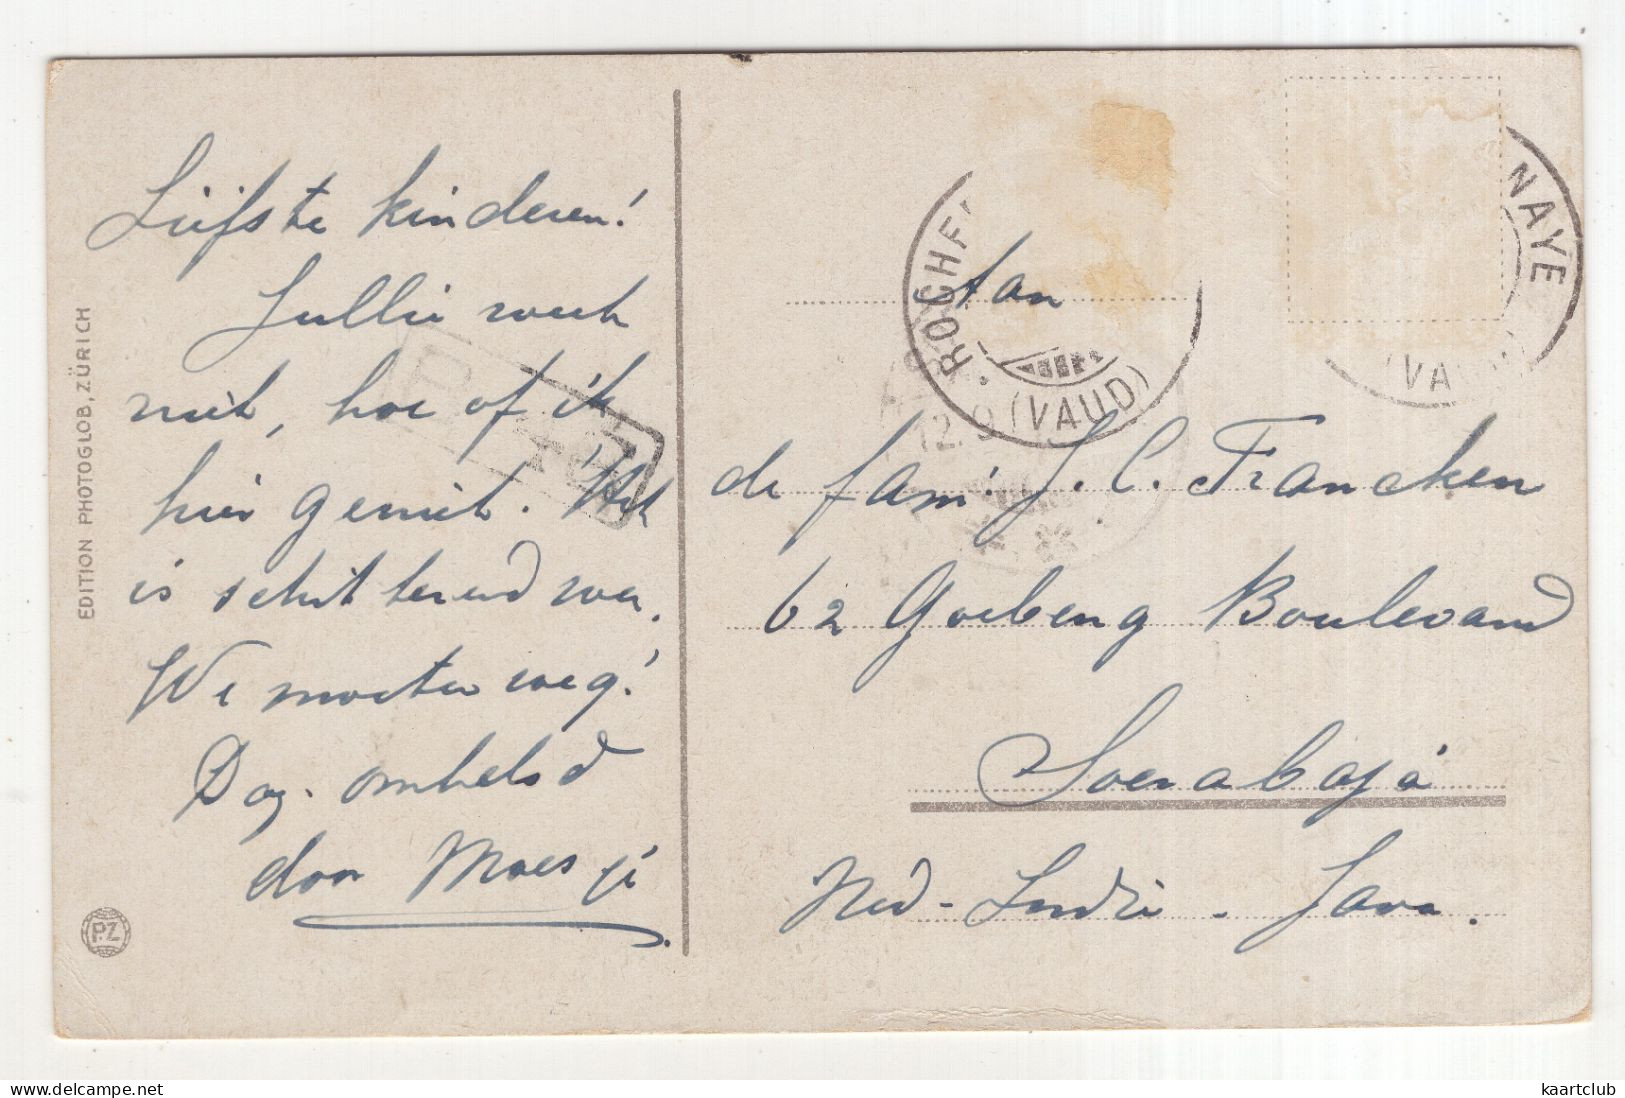 Liefste kinderen!
Jullie weet
niet, hoe of ik
hier geniet. Het
is schitterend weer.
We moeten weg!
Dag. omhelsd
door Moesje
EDITION PHOTOGLOB, ZÜRICH
P.Z
Aan
de fam. J. C. Francken
62 Goebeng Boulevard
Soerabaja
Ned-Indië - Java.
ROCHE
(VAUD)
NAYE
(VAUD)
12.9
kaartclub